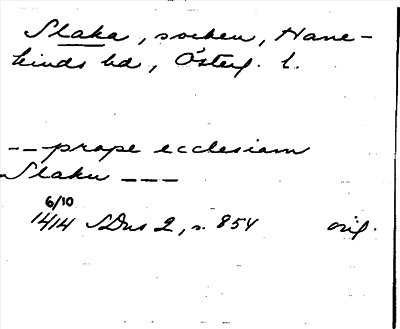 Slaka, socken, Hane-
kinds hd, Österg. l.
--prope ecclesiam
Slaku ---
6/10
1414 SDns 2, s. 854 orig.